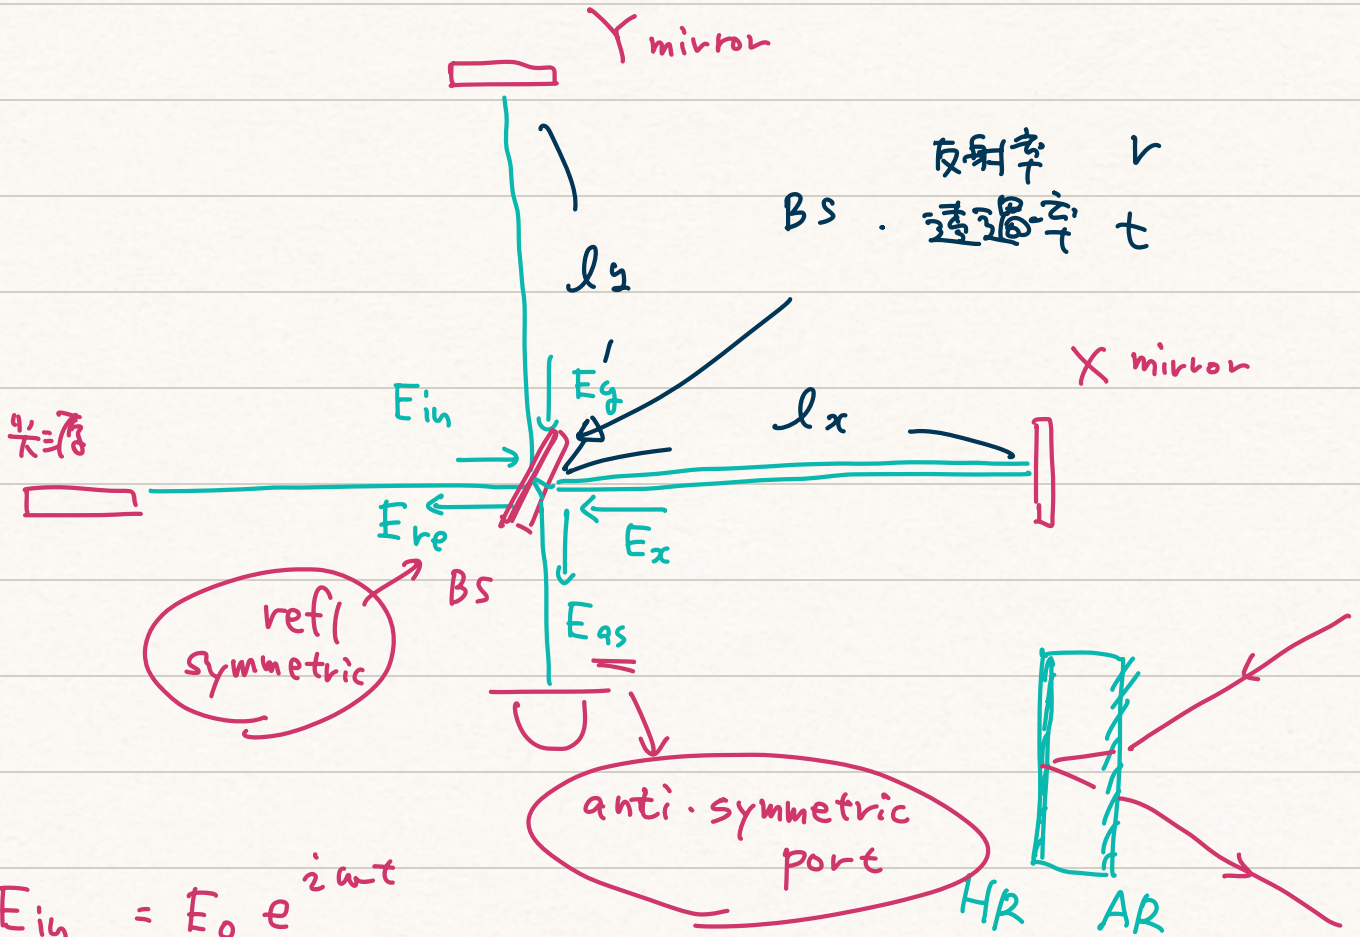 Y mirror
反射率 r
BS . 透過率 t
ly
X mirror
Ein
Ey'
lx
光源
Ere
Ex
BS
refl
symmetric
Eas
anti.symmetric
port
HR
AR
Ein = E0 e